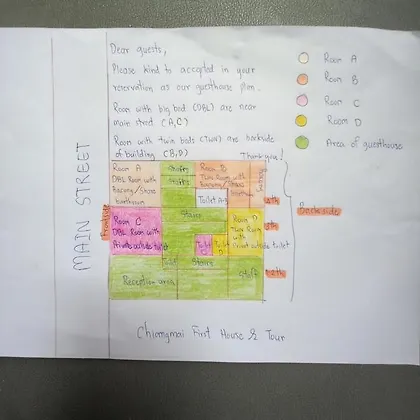 Dear guests,
Please kind to accepted in your
reservation as our guesthouse plan.
Room with big bed (DBL) are near
main street (A,C)
Room with twin beds (TWN) are backside
of building (B,D)
Thank you!
Room A
Room B
Room C
Room D
Area of guesthouse
MAIN STREET
Frontside
Backside
Room A
DBL Room with
Balcony/Share
bathroom
Stairs
Toilet A+B
Room C
DBL Room with
Private outside toilet
Stairs
Room D
Twin Room
with
Privat outside toilet
Toilet C
Toilet D
Stairs
Reception area
Staff
Chiangmai First House & Tour